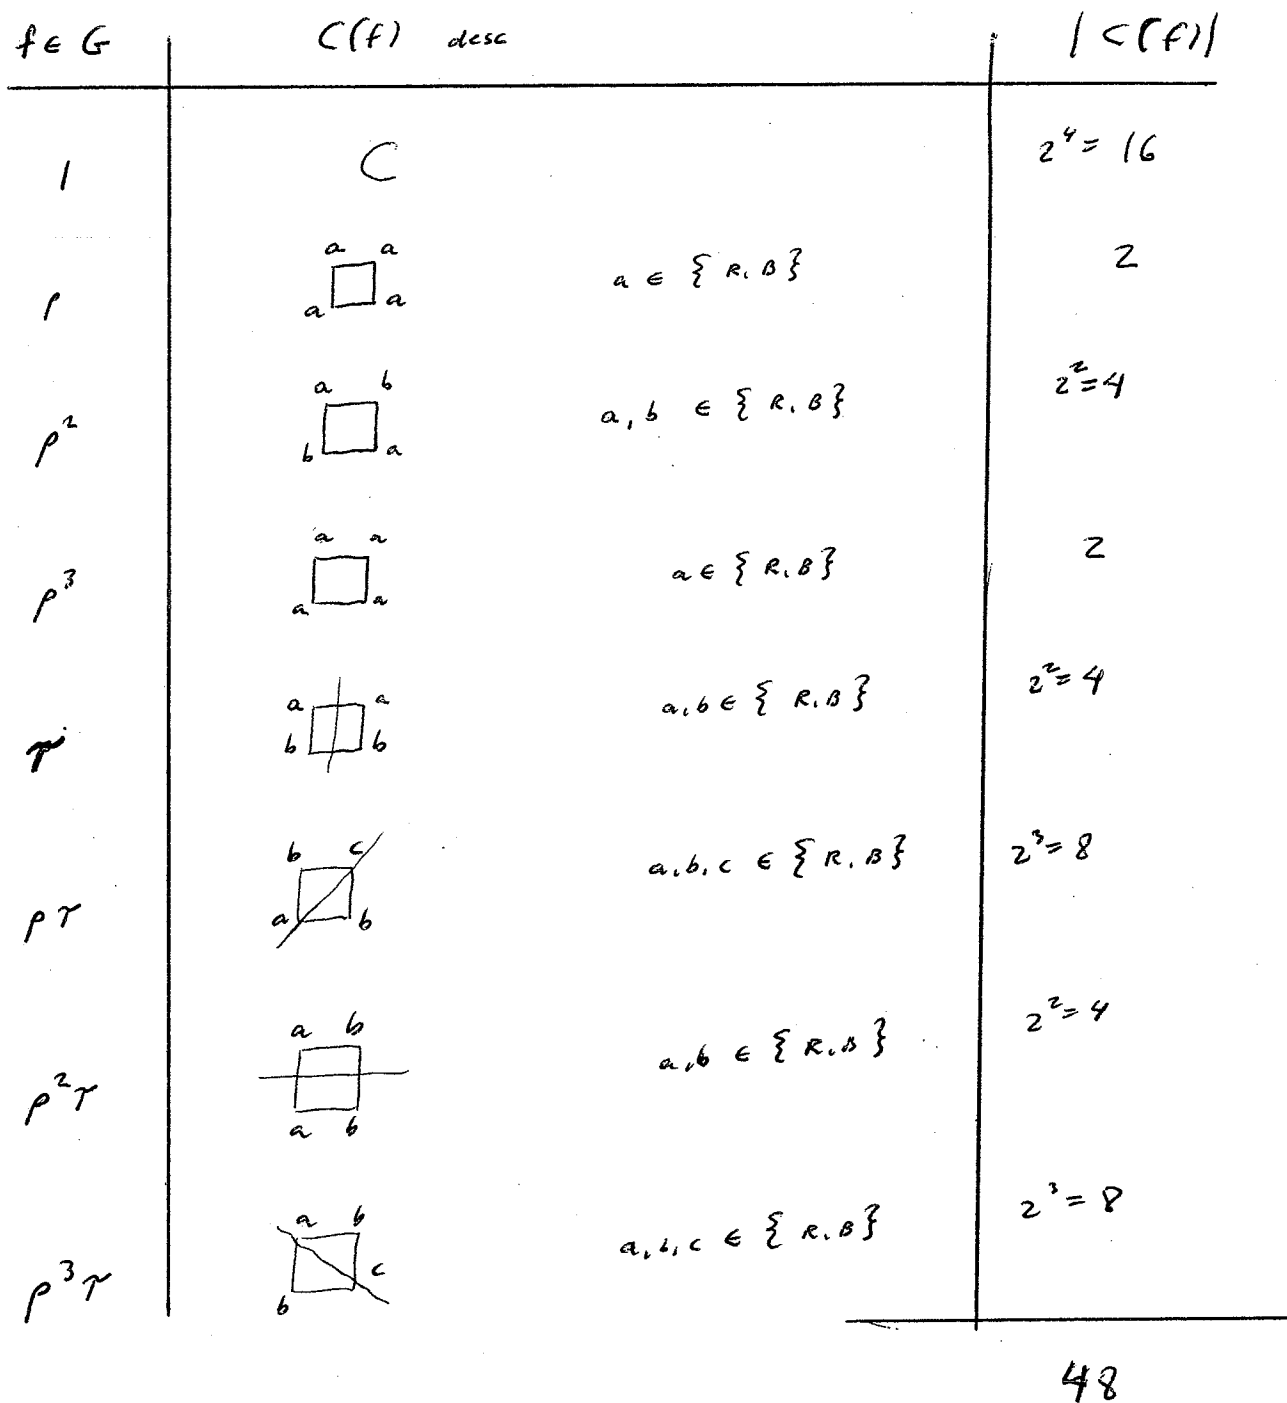 f ∈ G C(f) desc |C(f)|
1 C 2⁴ = 16
ρ a a a a a ∈ { R, B } 2
ρ² a b b a a, b ∈ { R, B } 2² = 4
ρ³ a a a a a ∈ { R, B } 2
τ a a b b a, b ∈ { R, B } 2² = 4
ρτ b c a b a, b, c ∈ { R, B } 2³ = 8
ρ²τ a b a b a, b ∈ { R, B } 2² = 4
ρ³τ a b b c a, b, c ∈ { R, B } 2³ = 8
48